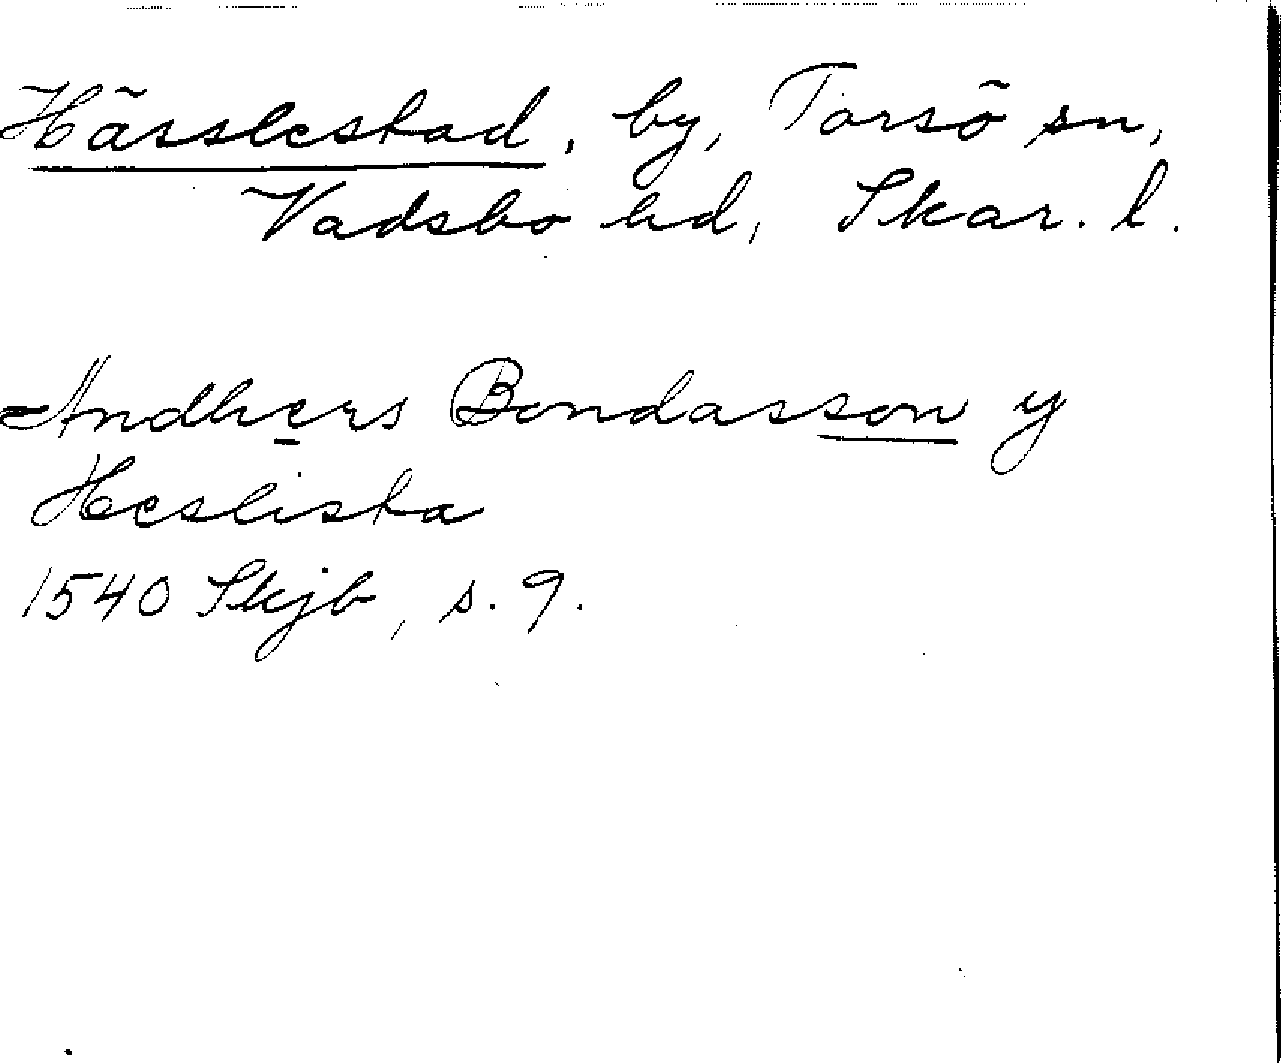 Härslestad, by, Torsö sn,
Vadsbo hd, Skar. l.
Andhers Bondasson y
Hesliska
1540 Skjb, s. 9.